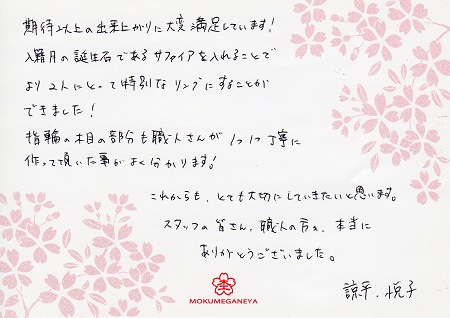 期待以上の出来上がりに大変満足しています!
入籍月の誕生石であるサファイアを入れることで
より2人にとって特別なリングにすることが
できました!
指輪の木目の部分も職人さんが1つ1つ丁寧に
作って頂いた事がよく分かります!
これからも、とても大切にしていきたいと思います。
スタッフの皆さん、職人の方々、本当に
ありがとうございました。
諒平、悦子
MOKUMEGANEYA